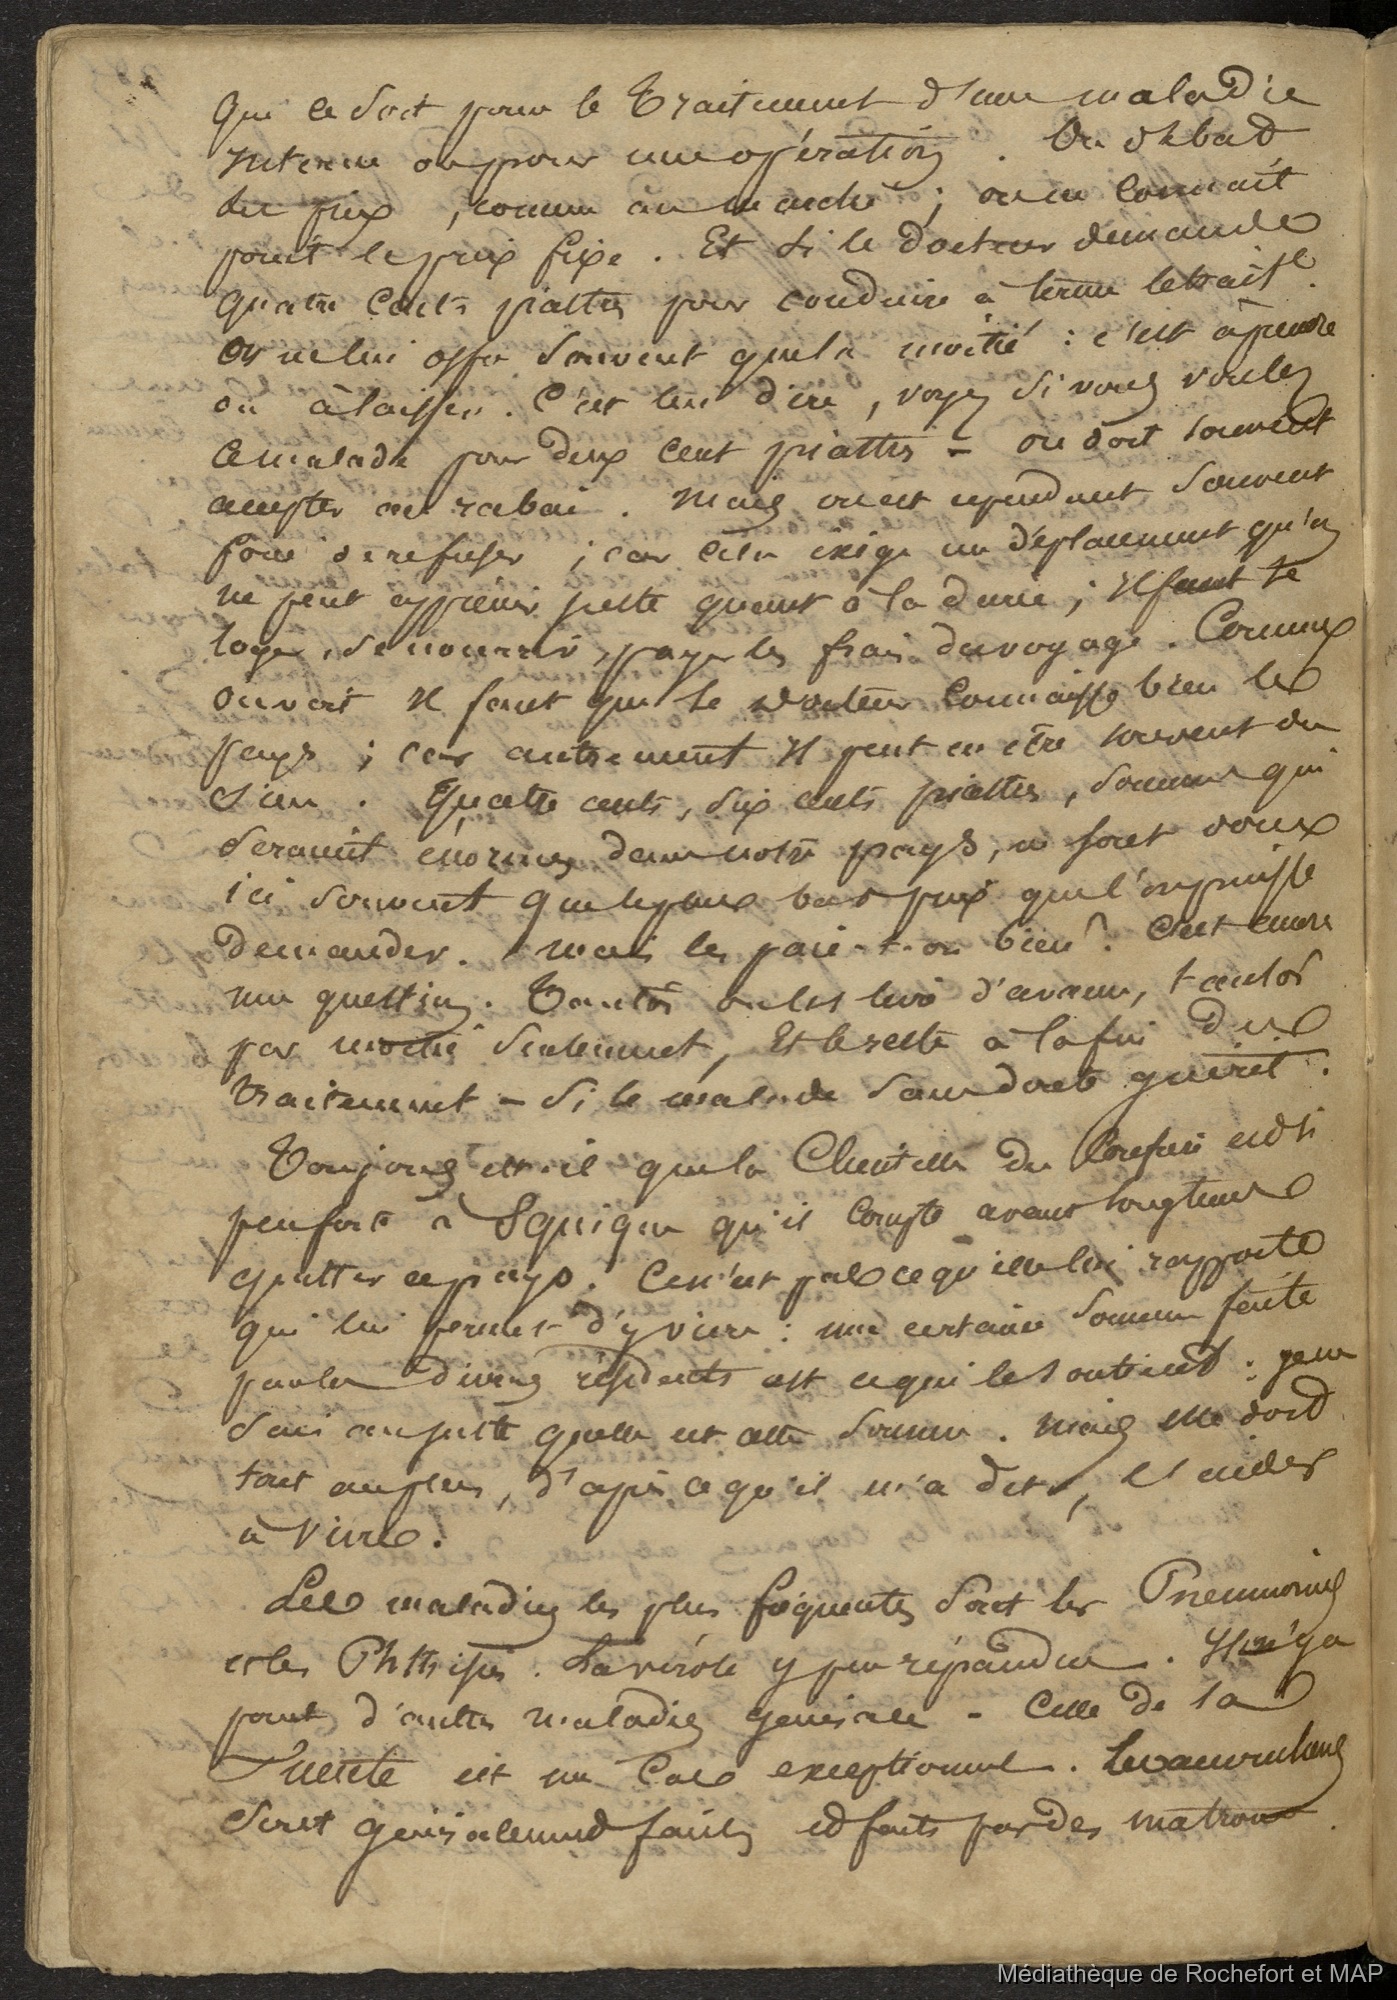 que ce soit pour le traitement d'une maladie
interne ou pour une opération. On débat
les prix, comme au marché ; on ne connait
point le prix fixe. Et si le docteur demande
quatre cents piastres pour conduire à terme le trait.t
on ne lui offre souvent que la moitié : c'est à prendre
ou à laisser. C'est lui dire, voyez si vous voulez
ce malade pour deux cent piastres – on doit souvent
accepter au rabai. Mais on est cependant souvent
forcé de refuser ; car cela exige un déplacement qu'on
ne peut apprécier juste quant à la durée ; il faut se
loger, se nourrir, payer les frais du voyage. Comme
on voit il faut que le docteur connaisse bien les
pays ; car autrement il peut en être souvent du
sien. Quatre cents, six cents piastres, sommes qui
seraient énormes dans notre pays, ne sont donc
ici souvent que le plus bas prix que l'on puisse
demander. Mais les paie-t-on bien ? C'est encore
une question. Tantôt on les livre d'avance, tantôt
par moitié seulement, et le reste à la fin du
traitement – si le malade sans doute guérit.
Toujours est-il que la Clientelle du confrère est si
peu forte à Iquique qu'il compte avant longtems
quitter ce pays. Ce n'est pas ce qu'elle lui rapporte
qui lui permet d'y vivre : une certaine somme faite
par les divers résidents est ce qui le soutient : je ne
sais au juste quelle est cette somme. Mais elle doit
tout au plus, d'après ce qu'il m'a dit, l'aider
à vivre.
Les maladies les plus fréquentes sont les Pneumonies
et les Phthisies. La vérole y peu répandue. Il n'y a
point d'autres maladies générales – Celle de la
est un cas exceptionnel. Les accouchemens
sont généralement faciles et faits par des matrones.
Médiathèque de Rochefort et MAP